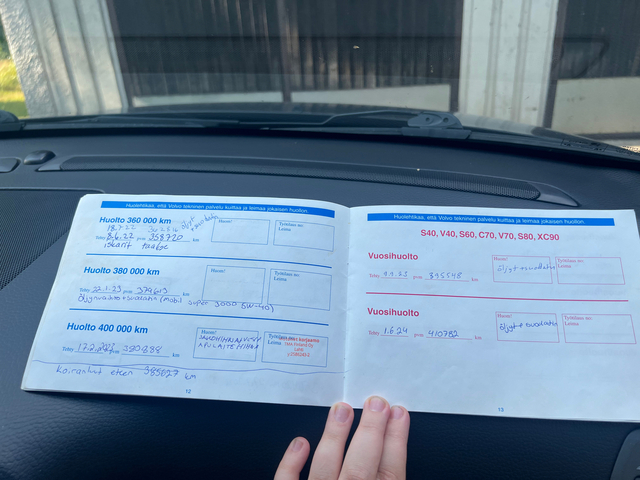 Huolehtikaa, että Volvo tekninen palvelu kuittaa ja leimaa jokaisen huollon.
Huolto 360 000 km
öljyt+suodatin
18.7.22
Tehty 8.6.22 pvm 358720 km
iskarit taakse
Huom!
Työtilaus no:
Leima
Huolto 380 000 km
Tehty 22.1.23 pvm 379613 km
Huom!
Työtilaus no:
Leima
Öljynvaihto+suodatin (mobil super 3000 5W-40)
Huolto 400 000 km
Tehty pvm 390888 km
Huom!
Työtilaus no:
Leima
Koiranluut eteen 385627 km
12
Huolehtikaa, että Volvo tekninen palvelu kuittaa ja leimaa jokaisen huollon.
S40, V40, S60, C70, V70, S80, XC90
Vuosihuolto
Tehty pvm 395548 km
Huom!
öljyt+suodatin
Työtilaus no:
Leima
Vuosihuolto
Tehty 1.6.24 pvm 410782 km
Huom!
öljyt+suodatin
Työtilaus no:
Leima
13